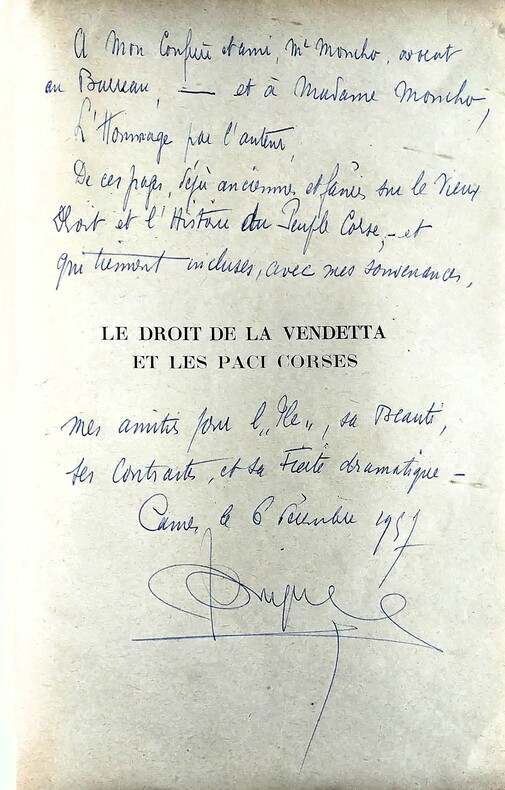 A Mon Confrère et ami, Me Moncho, avocat
au Barreau, — et à Madame Moncho,
L'Hommage par l'auteur,
De ces pages, déjà anciennes et fanées sur le Vieux
Droit et l'Histoire du Peuple Corse, - et
qui tiennent incluses, avec mes souvenances,
LE DROIT DE LA VENDETTA
ET LES PACI CORSES
mes amitiés pour l'„Ile", sa Beauté,
ses Contrastes, et sa Fierté dramatique -
Cannes, le 6 Décembre 1957